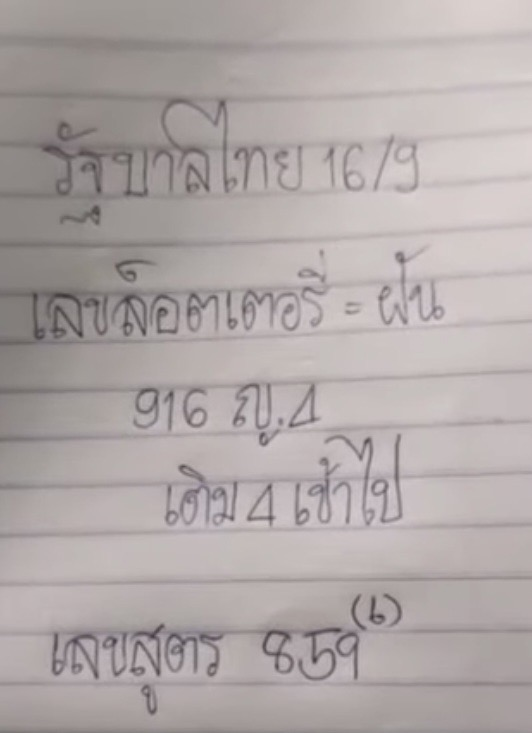 รัฐบาลไทย 16/9
เลขล็อตเตอรี่ = ฝัน
916 ญ.4
เติม 4 เข้าไป
เลขสูตร 859 (6)